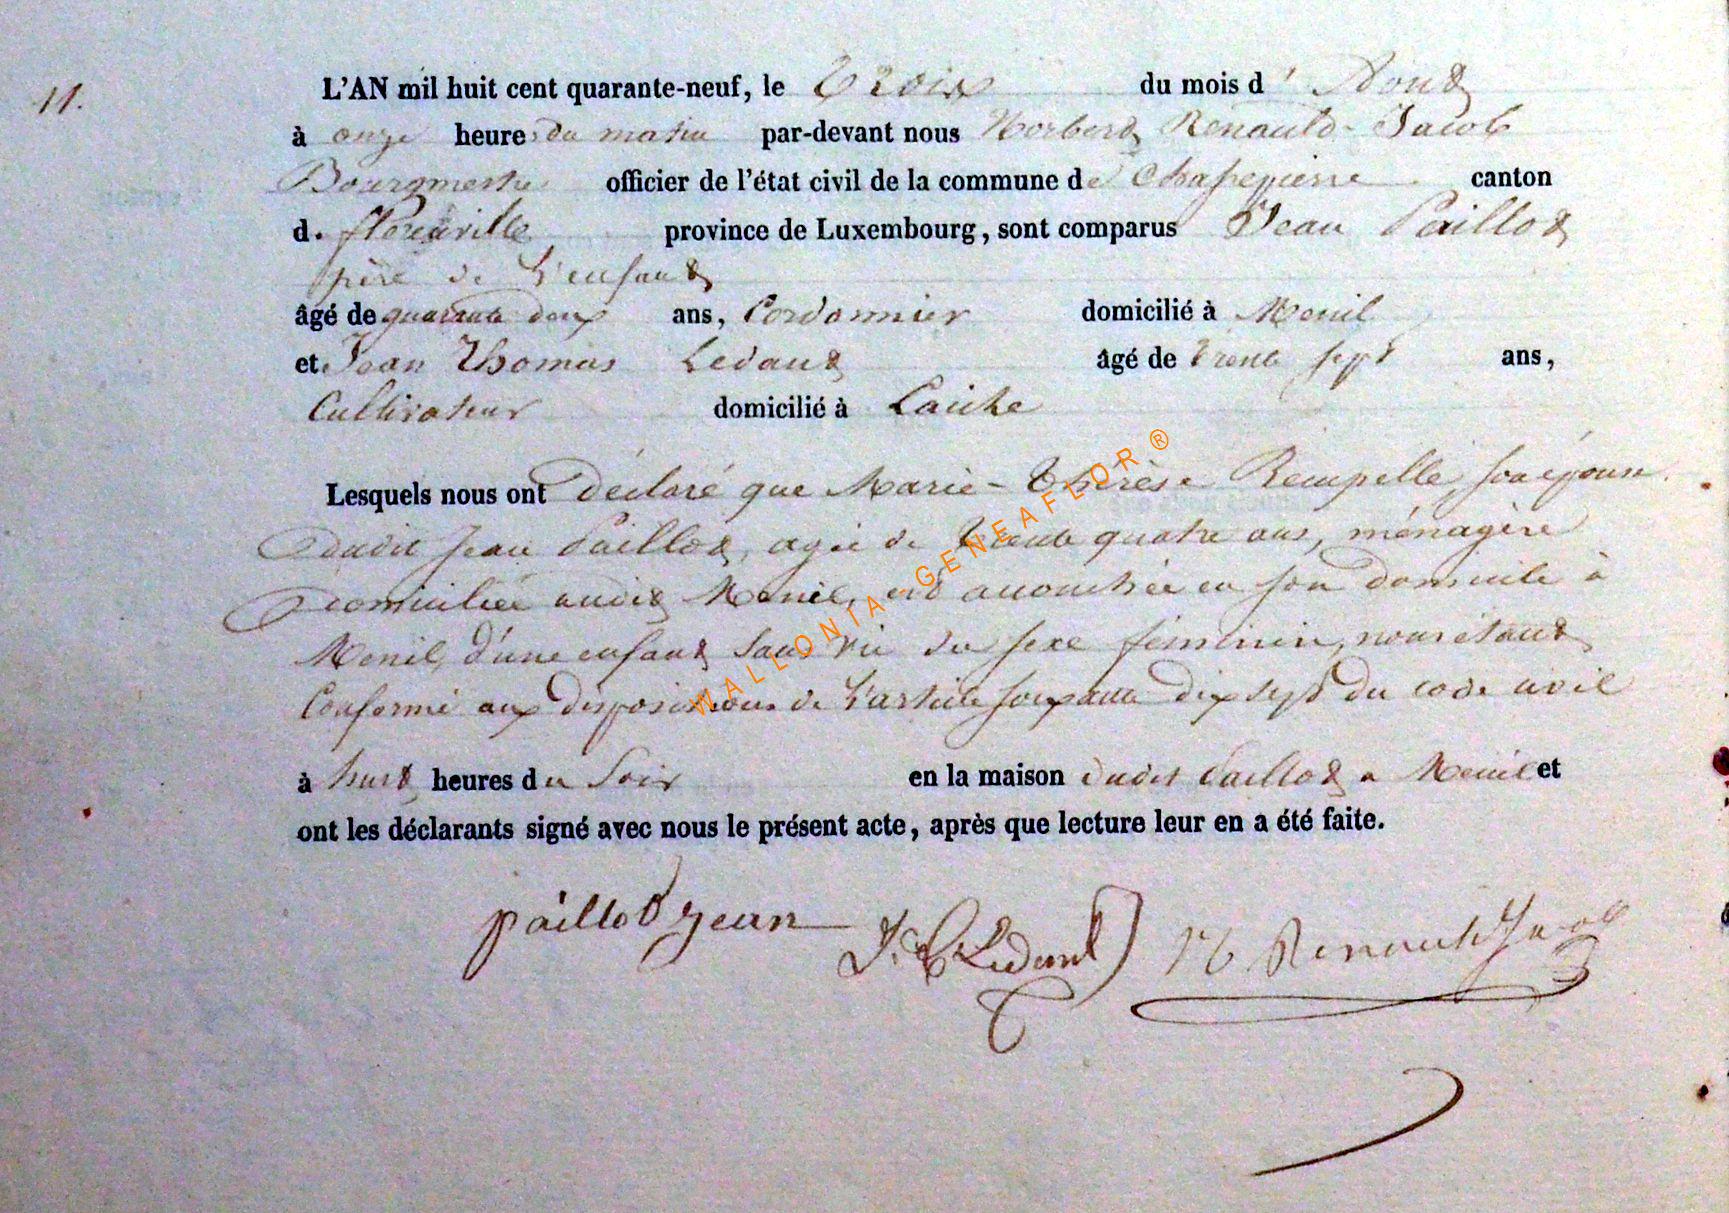 11.
L'AN mil huit cent quarante-neuf, le trois du mois d'Aout
à onze heures du matin par-devant nous Norbert Renauld-Jacob
Bourgmestre officier de l'état civil de la commune de Chassepierre canton
d. florenville province de Luxembourg, sont comparus Jean Paillot
père de l'enfant
âgé de quarante deux ans, Cordonnier domicilié à Menil
et Jean Thomas Ledant âgé de trente sept ans,
Cultivateur domicilié à Laiche
Lesquels nous ont déclaré que Marie-Thérèse Rempelle, son épouse
dudit Jean Paillot, agée de trente quatre ans, ménagère
domiciliée audit Menil, est accouchée en son domicile à
Menil, d'une enfant sans vie du sexe féminin, nous étant
Conformé aux dispositions de l'article soixante dix sept du code civil
à huit heures du soir en la maison dudit Paillot a Menil et
ont les déclarants signé avec nous le présent acte, après que lecture leur en a été faite.
paillot jean J. T. Ledant N Renauld Jacob
WALLONIA - GENEAFLOR ®